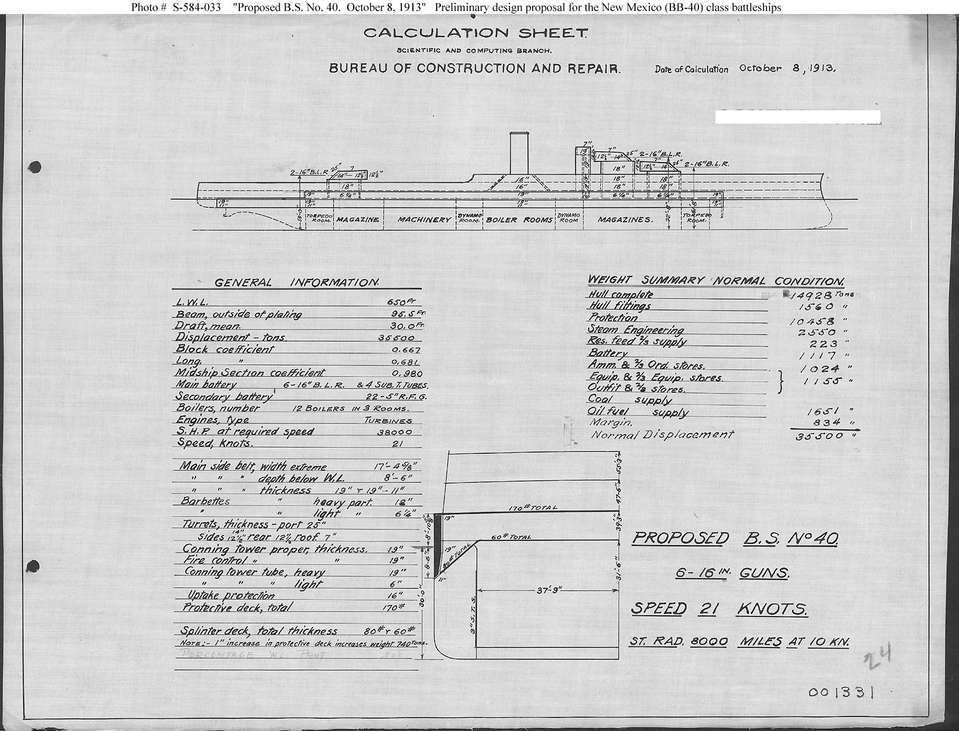 Photo # S-584-033 "Proposed B.S. No. 40. October 8, 1913" Preliminary design proposal for the New Mexico (BB-40) class battleships
CALCULATION SHEET.
SCIENTIFIC AND COMPUTING BRANCH.
BUREAU OF CONSTRUCTION AND REPAIR.
Date of Calculation October 8, 1913.
2-16"B.L.R.
2-16"B.L.R.
2-16"B.L.R.
TORPEDO ROOM.
MAGAZINE
MACHINERY
DYNAMO ROOM.
BOILER ROOMS
DYNAMO ROOM
MAGAZINES.
TORPEDO ROOM.
GENERAL INFORMATION.
L.W.L. 650 FT
Beam, outside of plating 95.5 FT
Draft, mean. 30.0 FT
Displacement - tons. 35500
Block coefficient 0.667
Long. " 0.681
Midship Section coefficient 0.980
Main battery 6-16"B.L.R. & 4 SUB.T.TUBES.
Secondary battery 22-5"R.F.G.
Boilers, number 12 BOILERS IN 3 ROOMS.
Engines, type TURBINES
S.H.P. at required speed 38000
Speed, knots. 21
Main side belt, width extreme 17'-4 5/8"
" " " depth below W.L. 8'-6"
" " " thickness 19" & 19"-11"
Barbettes " heavy part. 18"
" " light " 6 1/4"
Turrets, thickness - port 25"
Sides 14" 12 1/2" rear 12 1/2" roof 7"
Conning Tower proper, thickness. 19"
Fire control " " 19"
Conning tower tube, heavy 19"
" " " light 6"
Uptake protection 16"
Protective deck, total 170#
Splinter deck, total thickness 80# & 60#
NOTE:- 1" increase in protective deck increases weight 740 Tons.
WEIGHT SUMMARY NORMAL CONDITION.
Hull complete 14928 Tons
Hull fittings 1560 "
Protection 10458 "
Steam Engineering 2550 "
Res. feed 2/3 supply 223 "
Battery 1117 "
Amm. & 2/3 Ord. stores. 1024 "
Equip. & 2/3 Equip. stores.
Outfit & 2/3 stores. } 1155 "
Coal supply
Oil fuel supply 1651 "
Margin. 834 "
Normal Displacement 35500 "
170# TOTAL
60# TOTAL
80# TOTAL
19"
11"
37'-9"
31'-6"
PROPOSED B.S. No 40.
6-16 IN. GUNS.
SPEED 21 KNOTS.
ST. RAD. 8000 MILES AT 10 KN.
24
001331